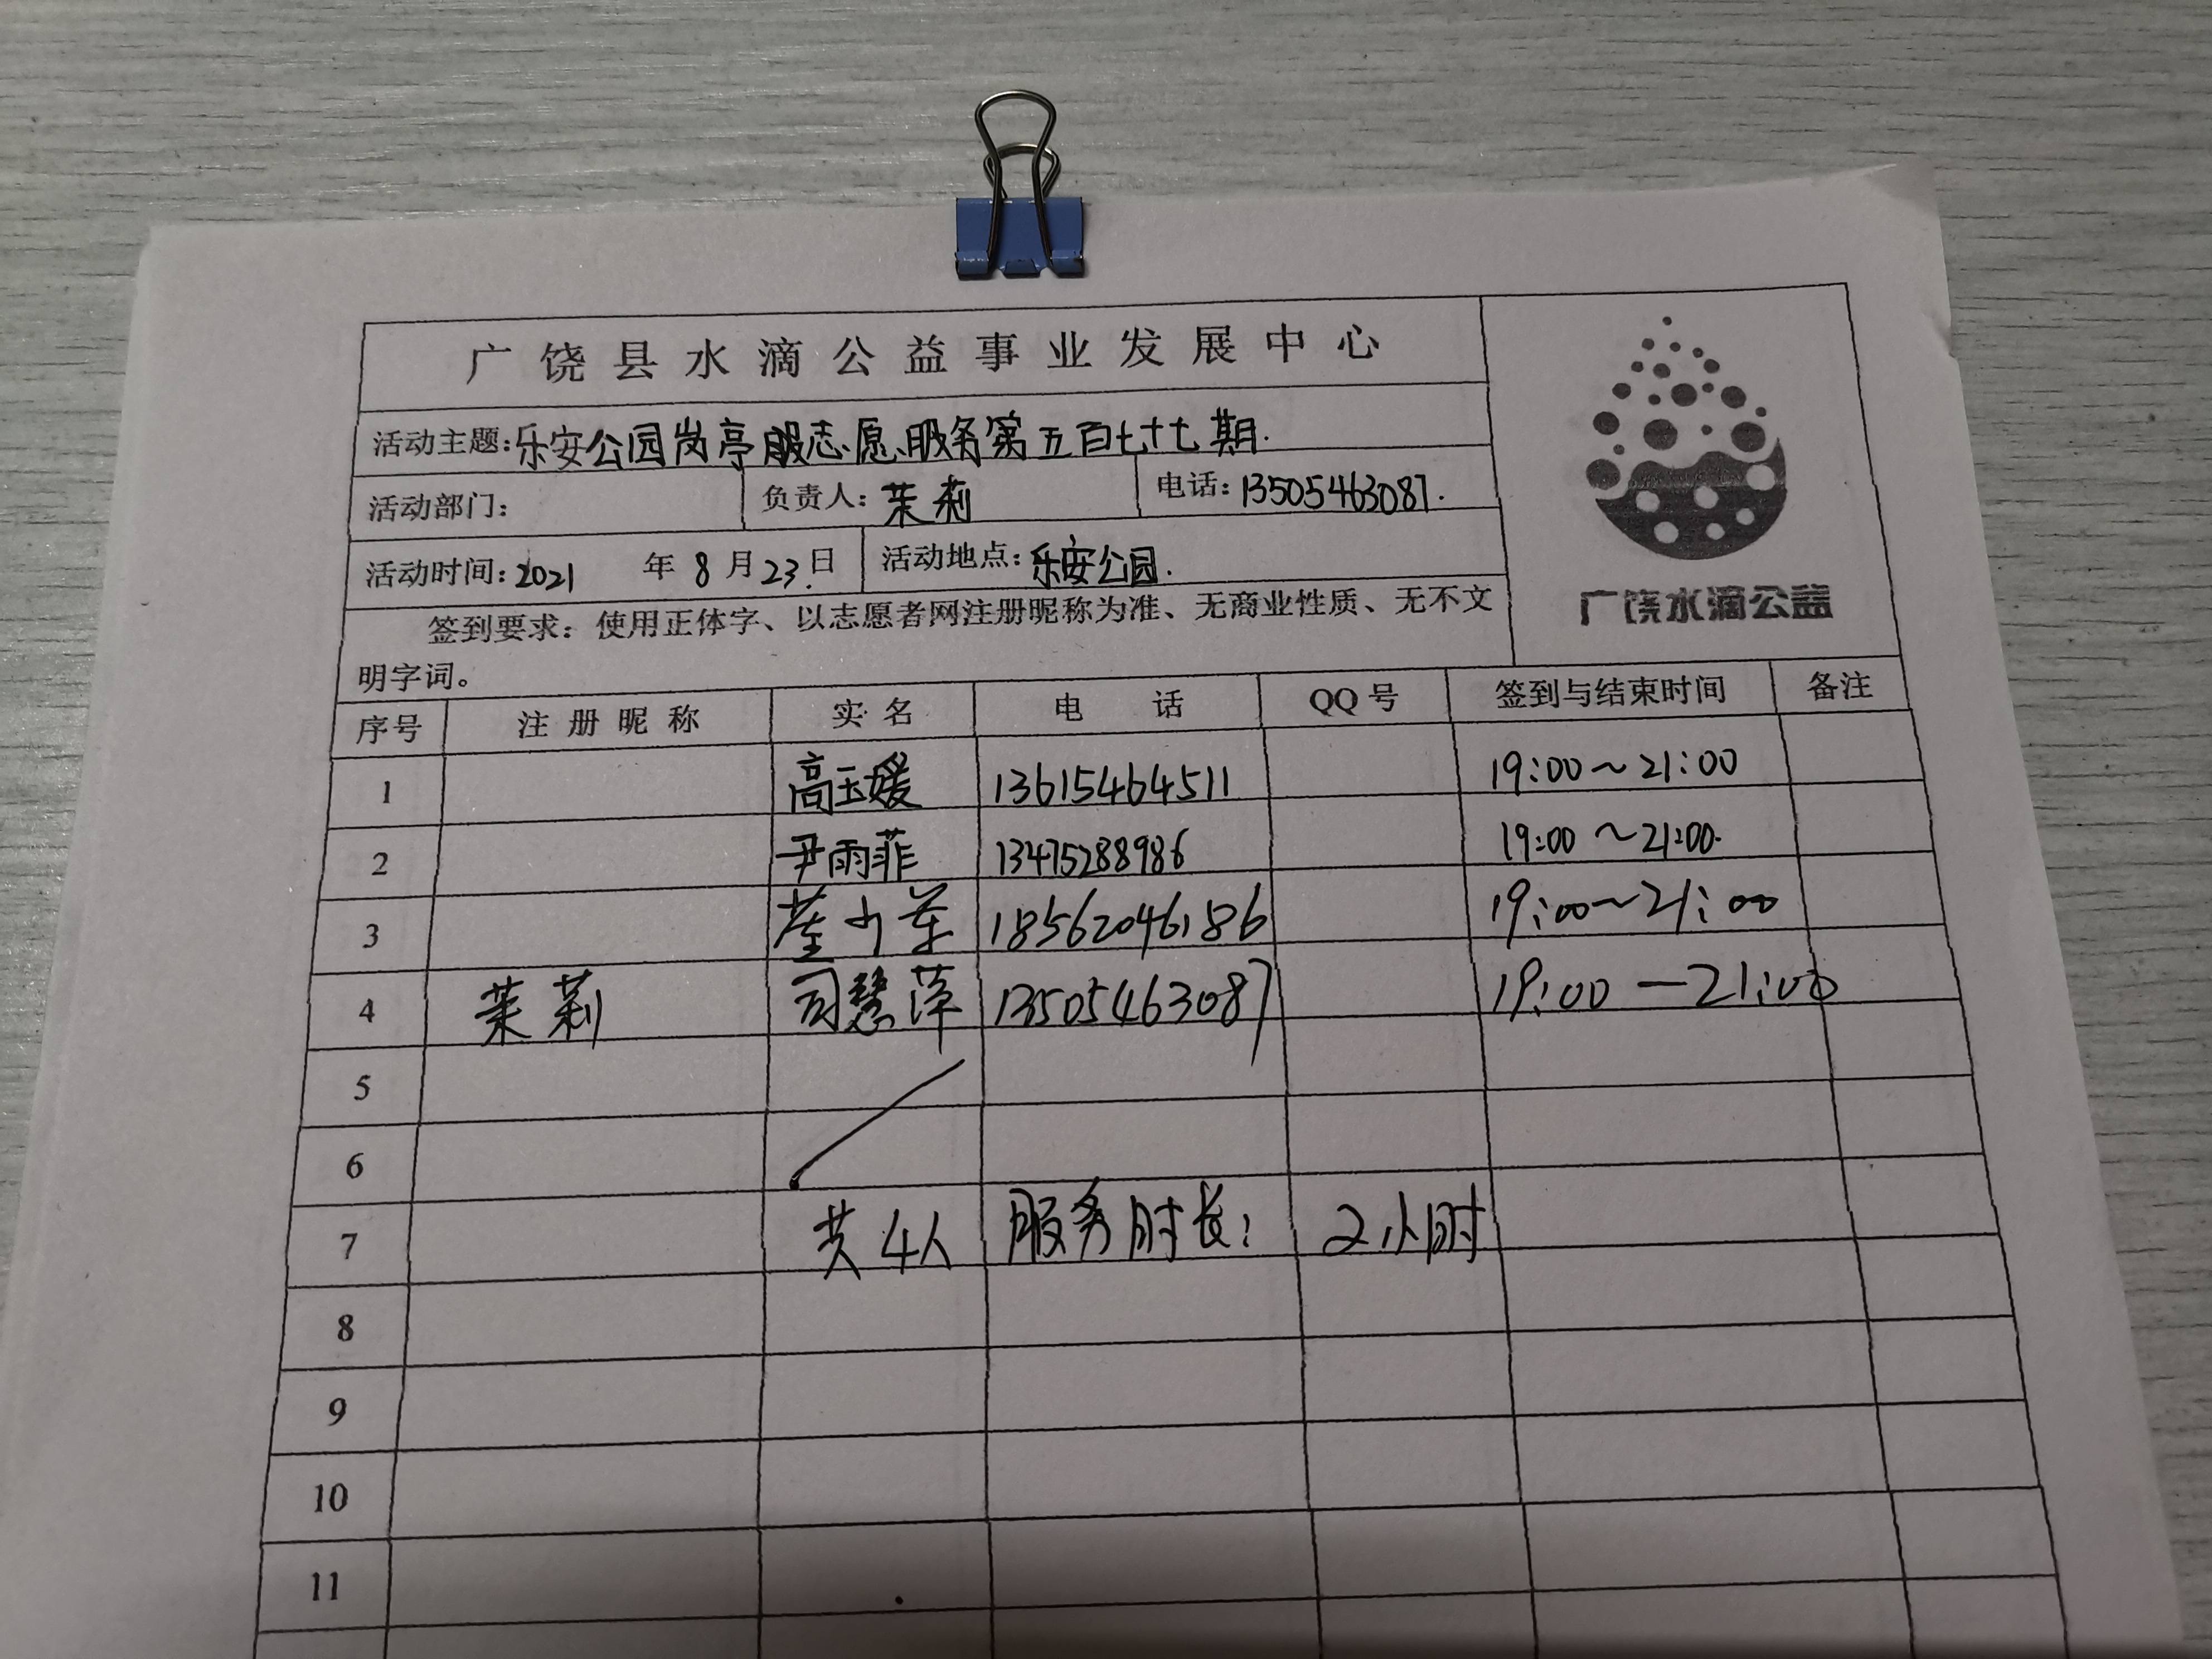 广饶县水滴公益事业发展中心
活动主题:乐安公园岗亭服志愿服务第五百七十七期.
活动部门: 负责人:茉莉 电话:13505463087.
活动时间:2021 年 8 月 23.日 活动地点:乐安公园.
签到要求:使用正体字、以志愿者网注册昵称为准、无商业性质、无不文
明字词。
广饶水滴公益
序号 注册昵称 实名 电 话 QQ号 签到与结束时间 备注
1 高玉媛 13615464511 19:00~21:00
2 尹雨菲 13475288986 19:00~21:00.
3 18562046186 19:00~21:00
4 茉莉 司慧萍 13505463087 19:00—21:00
5
6
7 共4人 服务时长: 2小时
8
9
10
11